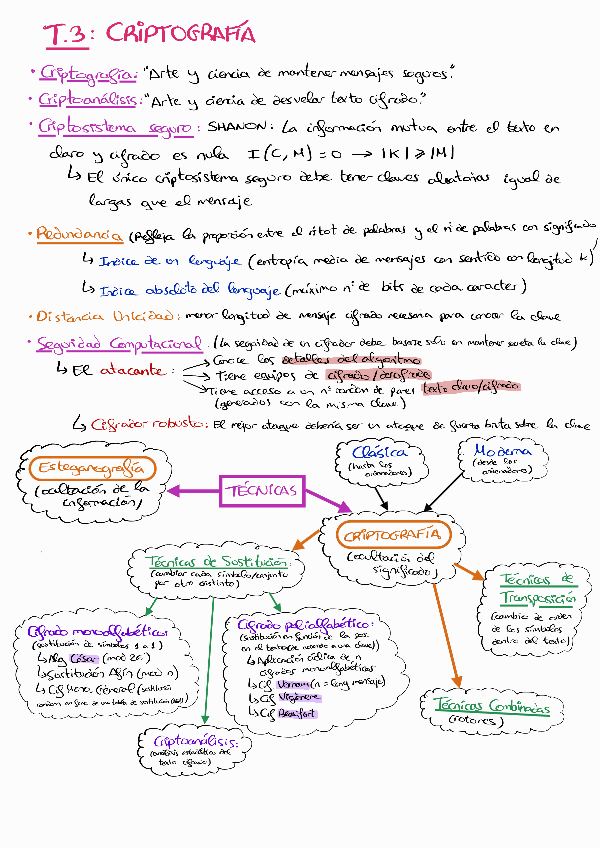 T.3: CRIPTOGRAFÍA
• Criptografía: "Arte y ciencia de mantener mensajes seguros."
• Criptoanálisis: "Arte y ciencia de desvelar texto cifrado."
• Criptosistema seguro: SHANON: La información mutua entre el texto en
claro y cifrado es nula I(C,M)=0 → |K| ≥ |M|
↳ El único criptosistema seguro debe tener claves aleatorias igual de
largas que el mensaje
• Redundancia (Refleja la proporción entre el nº tot de palabras y el nº de palabras con significado)
↳ Indice de un lenguaje (entropía media de mensajes con sentido con longitud k)
↳ Indice absoluto del lenguaje (máximo nº de bits de cada caracter)
• Distancia Unicidad: menor longitud de mensaje cifrado necesaria para conocer la clave
• Seguridad Computacional: (La seguridad de un cifrador debe basarse solo en mantener secreta la clave)
↳ El atacante:
→ Conoce los detalles del algoritmo
→ Tiene equipos de cifrado/descifrado
→ Tiene acceso a un nº de pares texto claro/cifrado
(generados con la misma clave)
↳ Cifrador robusto: El mejor ataque debería ser un ataque de fuerza bruta sobre la clave
Esteganografía
(ocultación de la
información)
TÉCNICAS
Clásica
(hasta los
ordenadores)
Moderna
(desde los
ordenadores)
CRIPTOGRAFÍA
(ocultación del
significado)
Técnicas de Sustitución:
(cambiar cada símbolo/conjunto
por otro distinto)
Técnicas de
Transposición
(cambio de orden
de los símbolos
dentro del texto)
Técnicas Combinadas
(rotores)
Cifrado monoalfabético:
(sustitución de símbolos 1 a 1)
↳ Alg César (mod 26)
↳ Sustitución Afín (mod n)
↳ Cif Mono General (sustitución
de una tabla de sustitución
Cifrado polialfabético:
(sustitución en función de la pos.
en el texto de acuerdo a una clave)
↳ Aplicación cíclica de n
cifrados monoalfabéticos
↳ Cif Vernam (n = long mensaje)
↳ Cif Vigènere
↳ Cif Beaufort
Criptoanálisis:
(análisis estadístico del
texto cifrado)